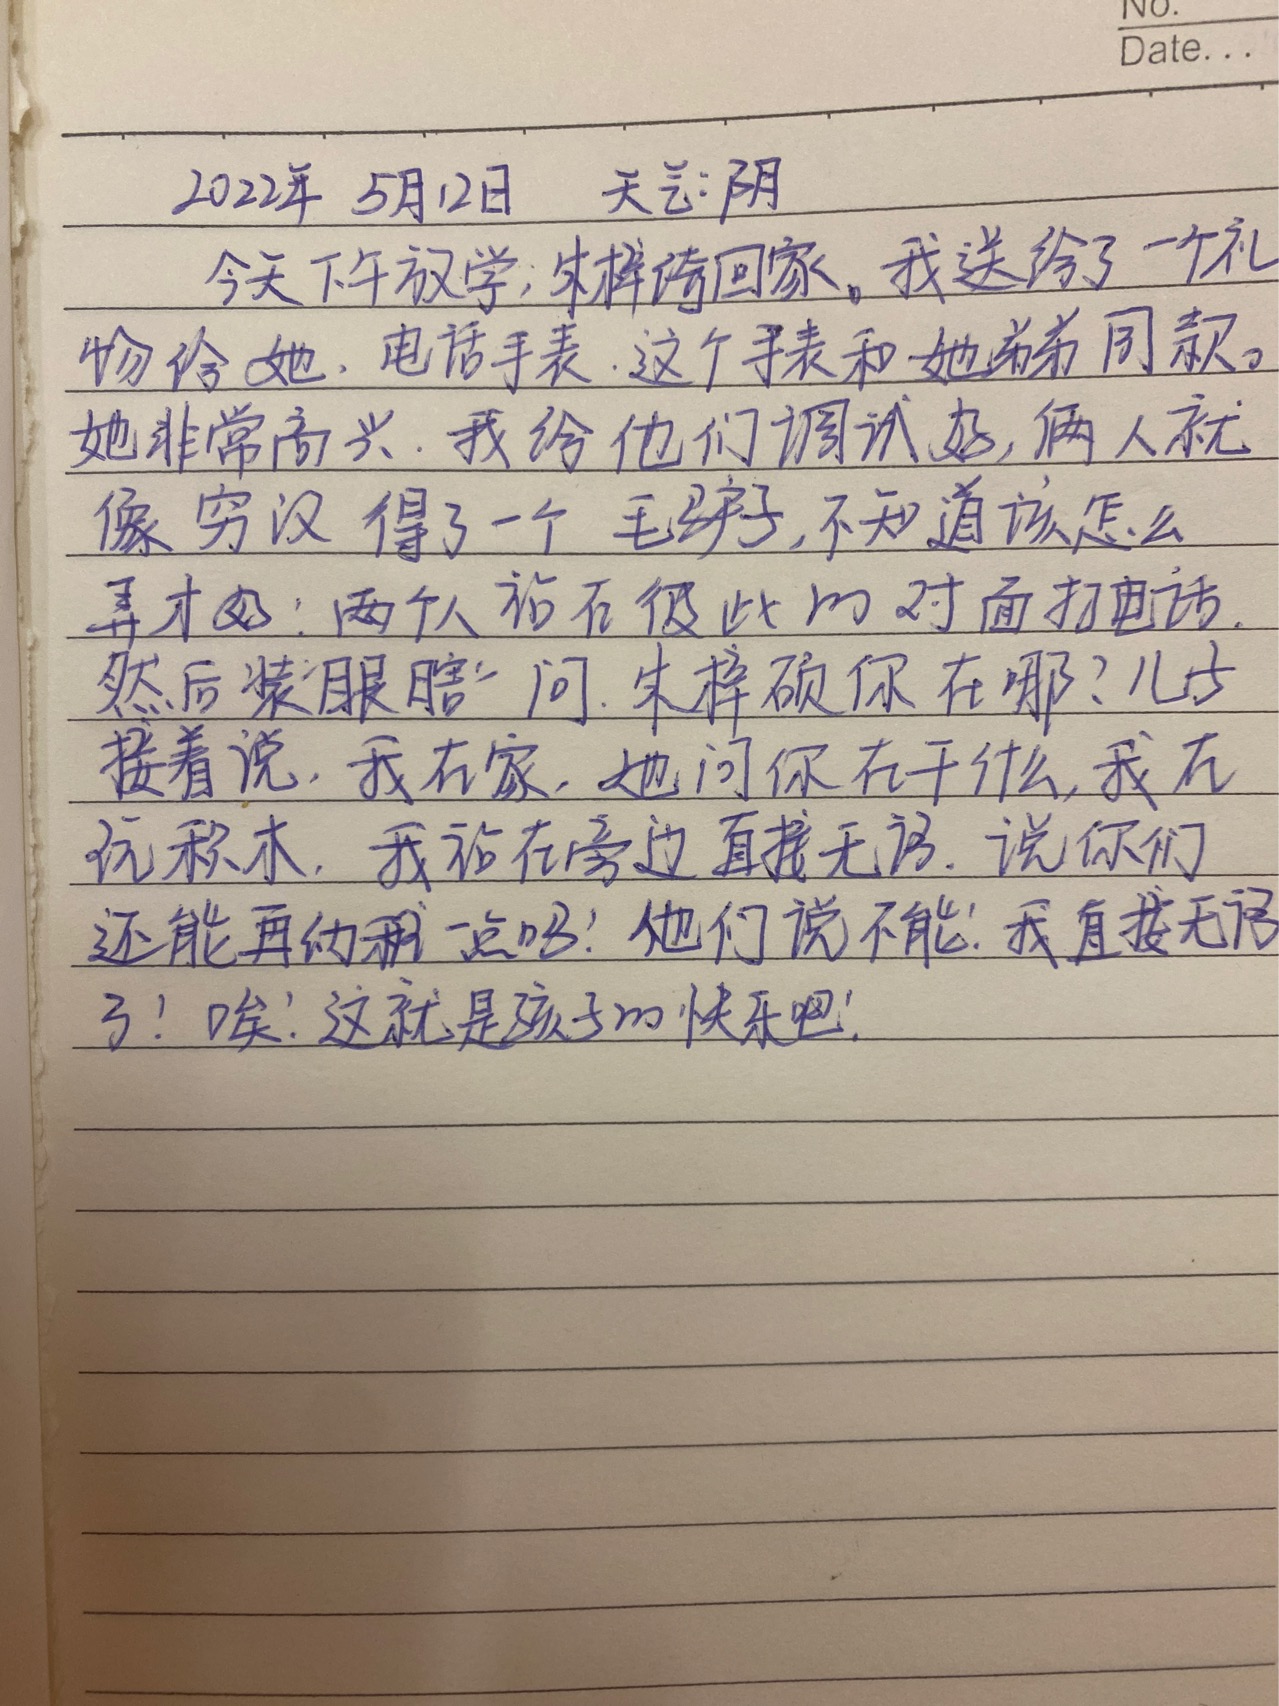 No.
Date...
2022年 5月12日 天气:阴
今天下午放学,朱梓倚回家。我送给了一个礼
物给她.电话手表.这个手表和她弟弟同款。
她非常高兴.我给他们调试好,俩人就
像穷汉得了一个毛驴子,不知道该怎么
弄才好:两个人站在彼此的对面打电话.
然后装"眼瞎"问.朱梓硕你在哪?儿子
接着说.我在家.她问你在干什么,我在
玩积木.我站在旁边直接无语.说你们
还能再幼稚一点吗!他们说不能!我直接无语
了!唉!这就是孩子的快乐吧!